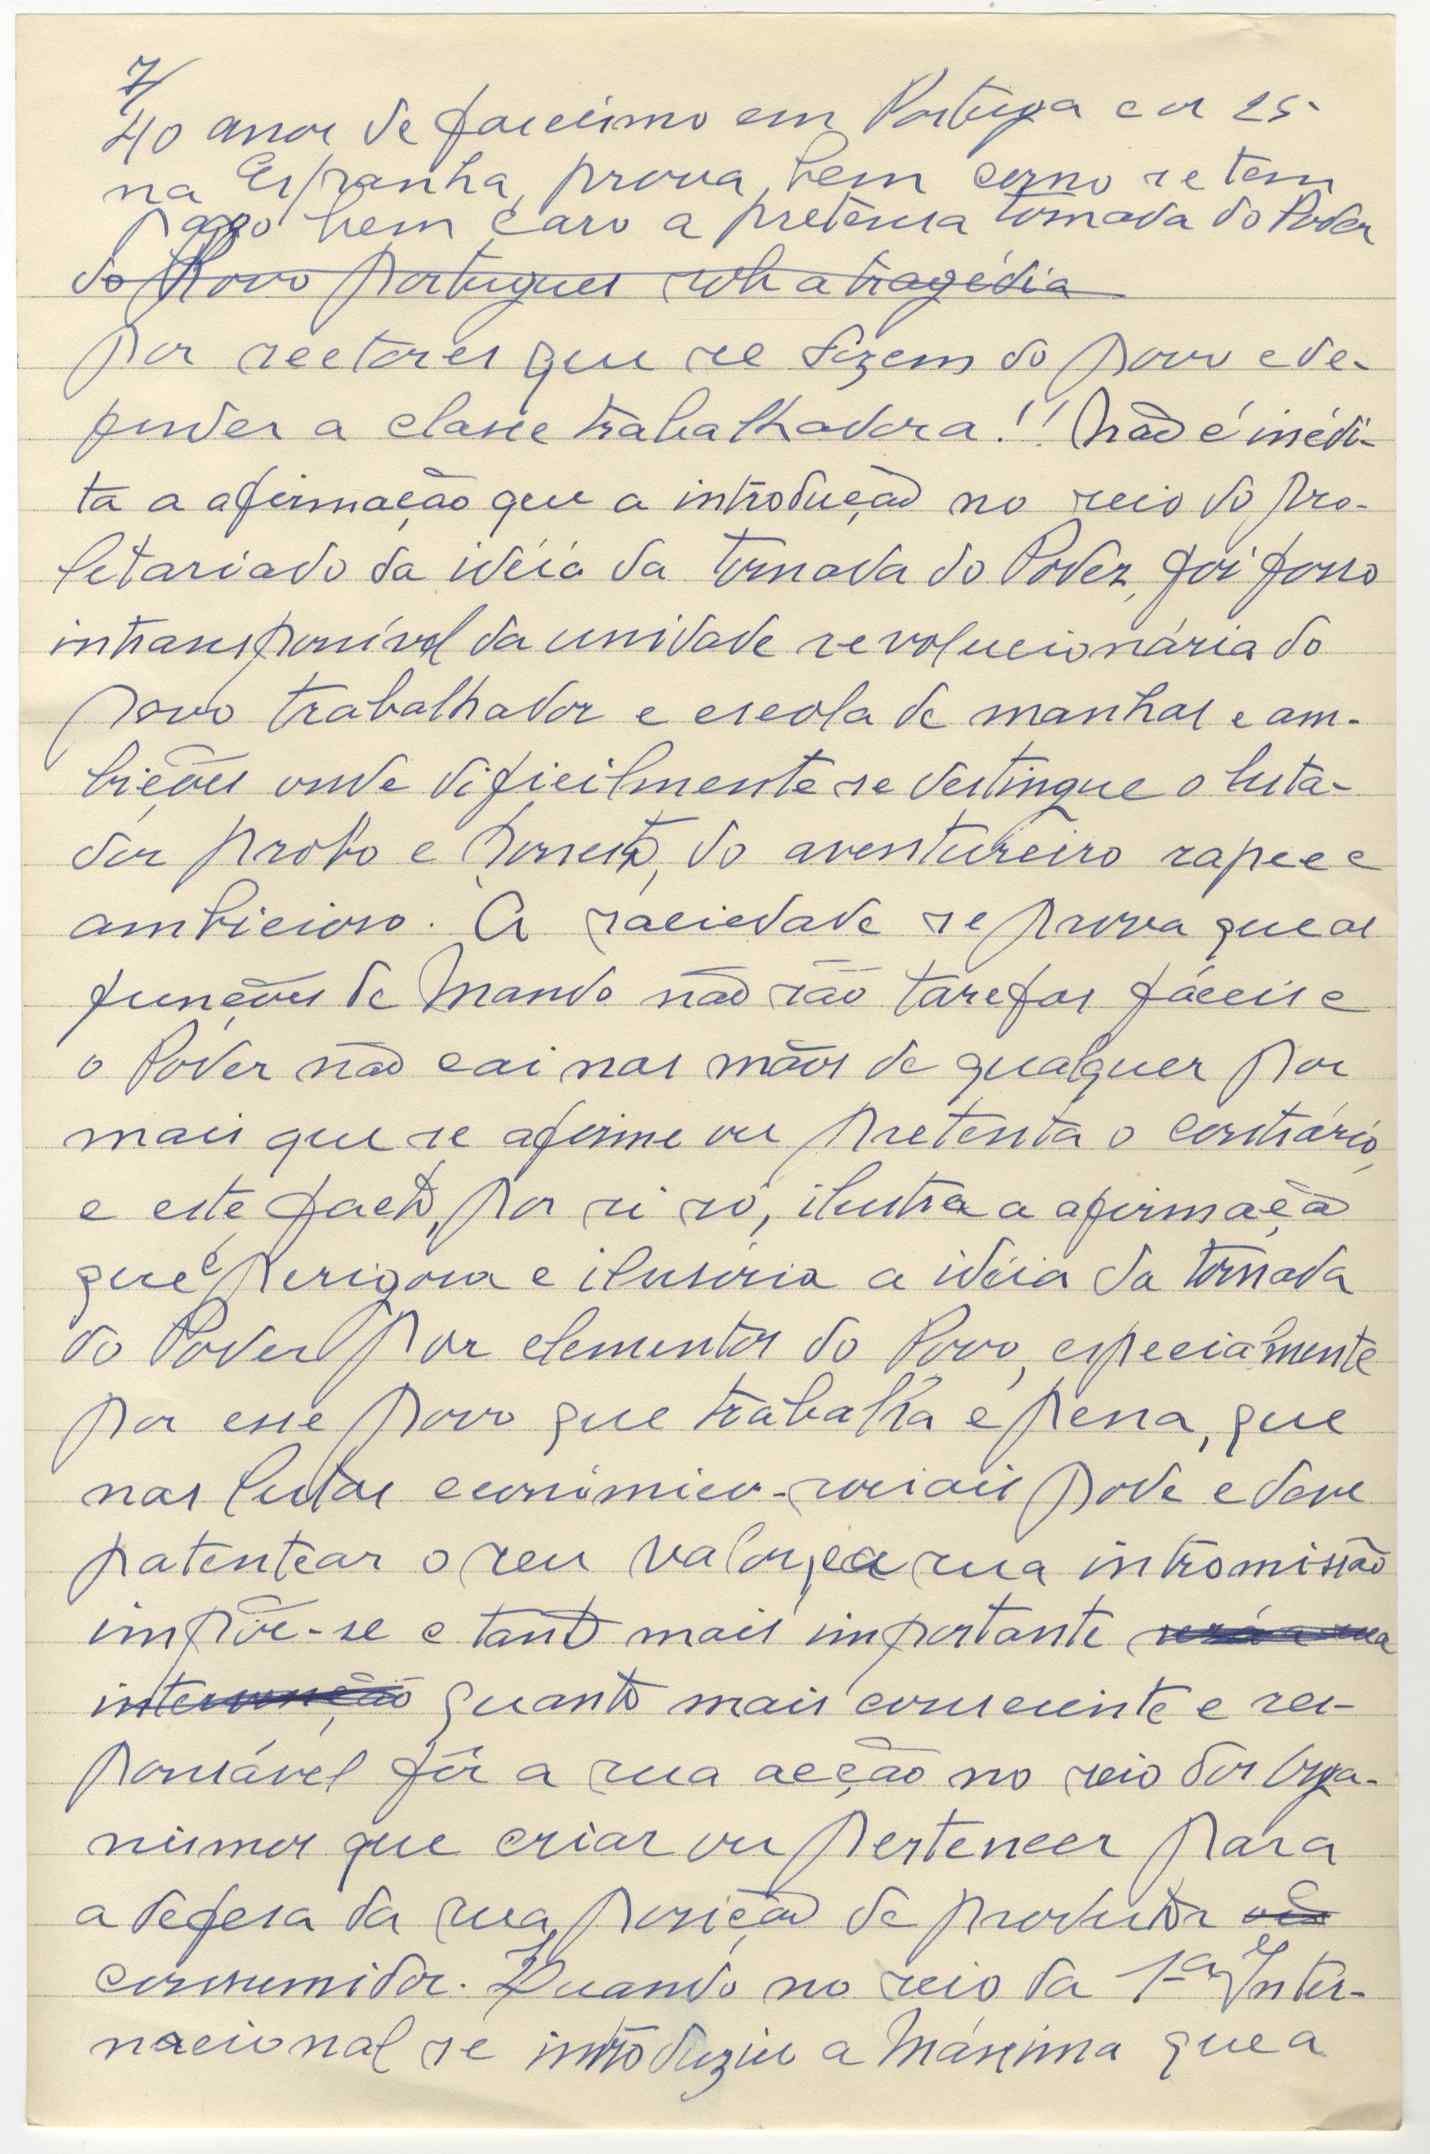 7/
40 anos de fascismo em Portuga e os 25
na Espanha, prova bem como se tem
pago bem caro a pretensa tomada do Poder
do Povo portugues sob a tragédia
por sectores que se dizem do povo e de-
fender a classe trabalhadora!! Não é inédi-
ta a afirmação que a introdução no seio do pro-
letariado da idéia da tomada do Poder, foi fosso
intransponível da unidade revolucionária do
povo trabalhador e escola de manhas e am-
bições onde dificilmente se destingue o luta-
dor probo e honesto, do aventureiro rapece e
ambicioso. À saciedade se prova que as
funções de Mando não são tarefas fáceis e
o Poder não cai nas mãos de qualquer por
mais que se afirme ou pretenta o contrário,
e este facto, por si só, ilustra a afirmação
que é perigosa e ilusória a idéia da tomada
do Poder por elementos do Povo, especialmente
por esse povo que trabalha e pensa, que
nas lutas económico-sociais pode e deve
patentear o seu valor, e a sua intromissão
impõe-se e tanto mais importante será a sua
intervenção quanto mais consciente e res-
ponsável fôr a sua acção no seio dos Orga-
nismos que criar ou pertencer para
a defesa da sua posição de produtor ou e
consumidor. Quando no seio da 1ª Inter-
nacional se introduziu a Máxima que a